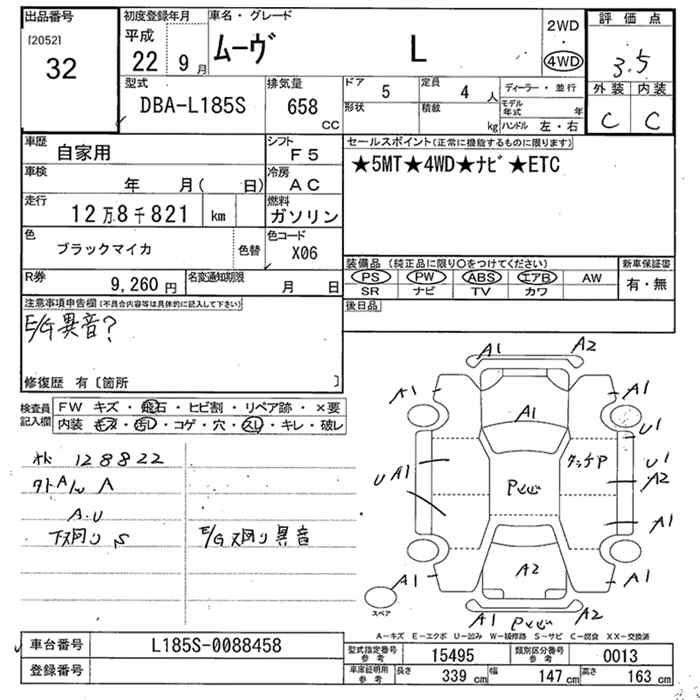 出品番号
[2052]
32
初度登録年月
平成
22 9月
車名・グレード
ムーヴ L
2WD
・
4WD
評価点
3.5
外装 内装
C C
型式
DBA-L185S
排気量
658
cc
ドア 5
定員 4 人
形状
積載 kg
ディーラー・並行
モデル年式 年
ハンドル 左・右
車歴
自家用
シフト
F5
車検
年 月( 日)
冷房
AC
走行
12万8千821 km
燃料
ガソリン
色
ブラックマイカ
色替
色コード
X06
R券
9,260円
名変通知期限
月 日
セールスポイント(正常に機能するものに限ります)
★5MT★4WD★ナビ★ETC
装備品(純正品に限り○をつけてください)
PS PW ABS エアB AW
SR ナビ TV カワ
新車保証書
有・無
後日品
注意事項申告欄(不具合内容等は具体的に記入して下さい)
E/G異音?
修復歴 有〔箇所 〕
検査員
記入欄
FW キズ・飛石・ヒビ割・リペア跡・×要
内装 キズ・汚レ・コゲ・穴・スレ・キレ・破レ
128822
A
A.U
下廻りS
E/G廻り異音
A1 A2
A1 A1
A1
U1
U A1
U1
A2
A1
A2
A1 A1
スペア
A1
A-キズ E-エクボ U-凹み W-補修跡 S-サビ C-腐食 XX-交換済
車台番号
L185S-0088458
登録番号
型式指定番号
参考
15495
類別区分番号
参考
0013
車庫証明用
参考
長さ 339 cm
幅 147 cm
高さ 163 cm